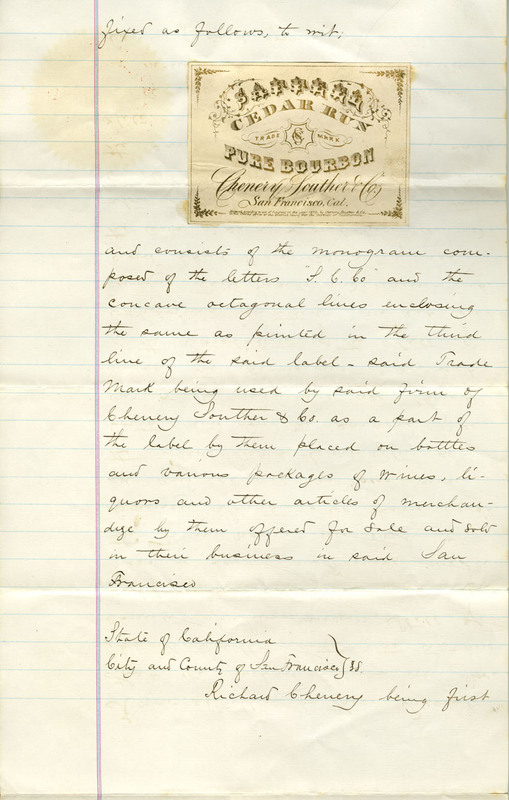 fixed as follows, to wit;
CEDAR RUN
TRADE MARK
PURE BOURBON
Chenery Souther & Co.
San Francisco, Cal.
and consists of the monogram com-
posed of the letters "S. C. Co" and the
concave octagonal lines enclosing
the same as printed in the third
line of the said label - said Trade
Mark being used by said firm of
Chenery Souther & Co. as a part of
the label by them placed on bottles
and various packages of wines, li-
quors and other articles of merchan-
dize by them offered for sale and sold
in their business in said San
Francisco
State of California
City and County of San Francisco } ss.
Richard Chenery being first